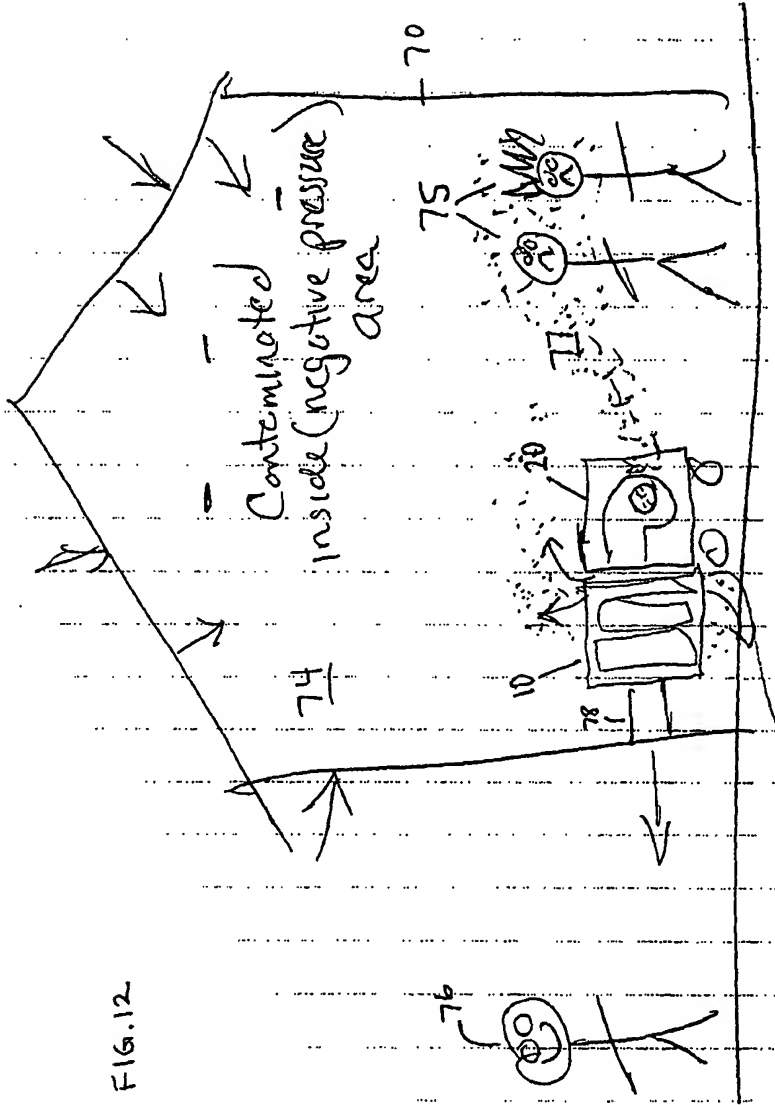 FIG.12
Contaminated
inside (negative pressure)
area
70
74
75
20
10
78
76